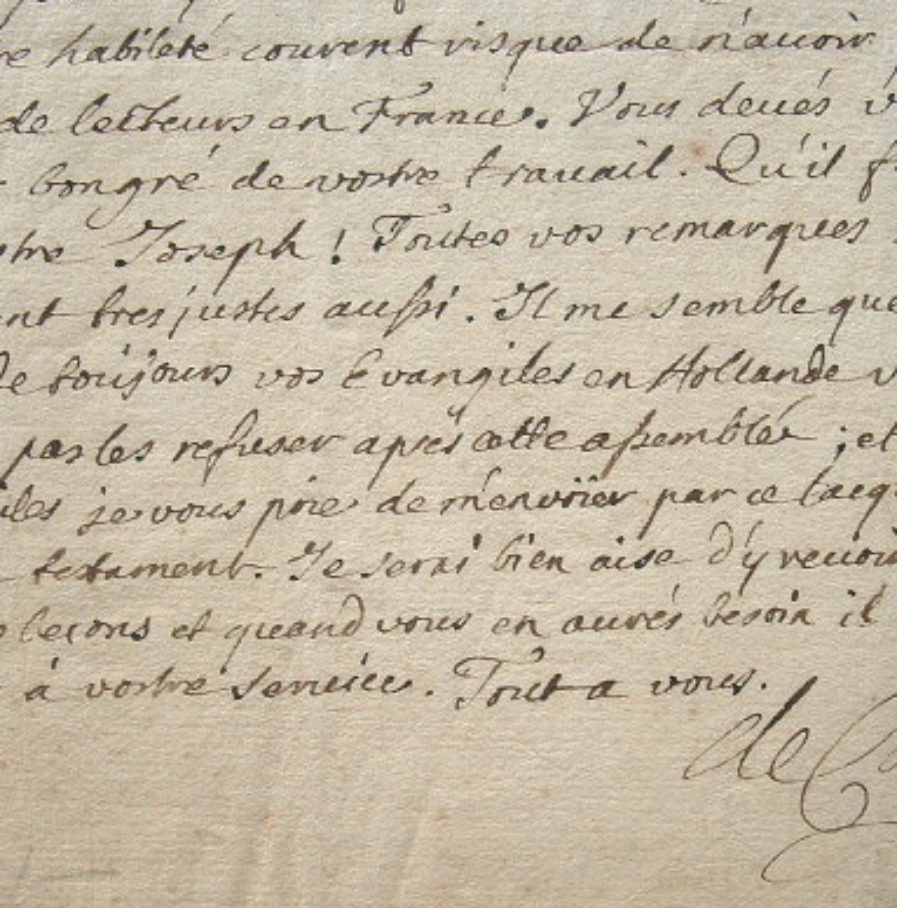 re habileté courent risque de n'auoir
de lecteurs en France. Vous deués
bongré de vostre trauail. Qu'il
stre Joseph ! Toutes vos remarques
ent tres justes aussi. Il me semble que
de toujours vos Evangiles en Hollande
pas les refuser aprés cette assemblée ; et
iles je vous prie de m'envoïer par ce lacq
testament. Je serai bien aise d'y reuoir
leçons et quand vous en aurés besoin il
à vostre seruice. Tout a vous.
de